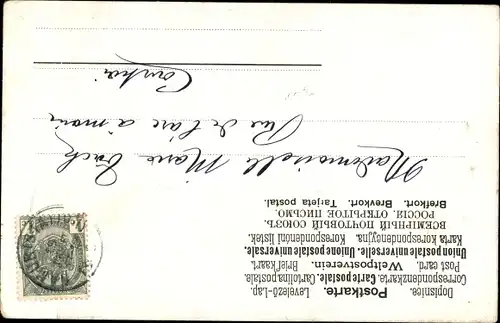 Postkarte.
Dopisnice. Levelező-Lap.
Correspondenzkarte. Carte postale. Cartolina postale.
Post card. Weltpostverein. Briefkaart.
Union postale universelle. Unione postale universale.
Karta korespondencyjna. Korespondenční lístek.
ВСЕМІРНЫЙ ПОЧТОВЫЙ СОЮЗЪ.
РОССІЯ. ОТКРЫТОЕ ПИСЬМО.
Brefkort. Brevkort. Tarjeta postal.
Mademoiselle Marie
Rue de